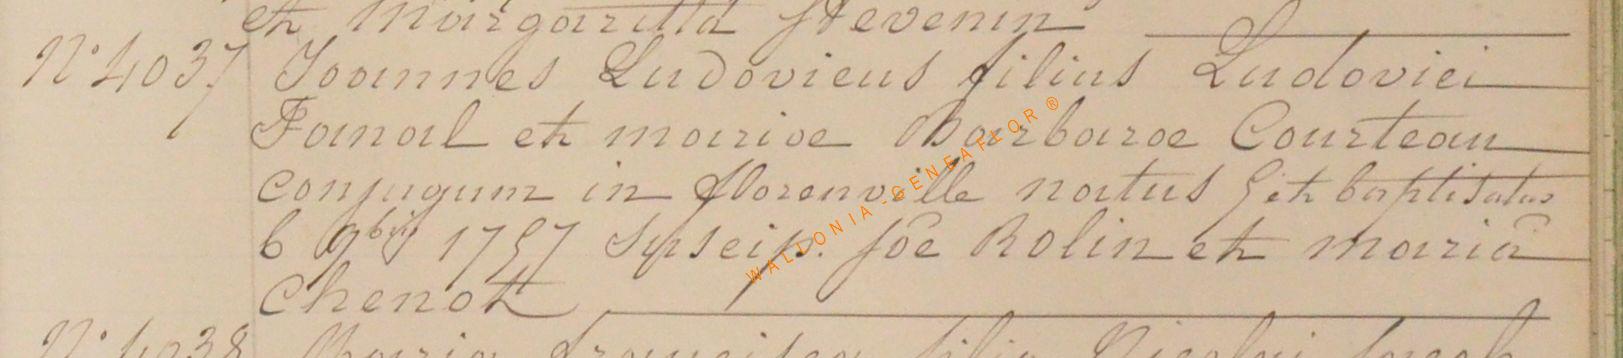 et Margaritta Stevenin
N° 4037 Joannes Ludovicus filius Ludovici
Fanal et mariae Barbarae Courteau
conjugum in florenville natus 5 et baptisatus
6 9bris 1757 Suscip. Joê Rolin et mariâ
Chenot
N° 4038 Maria Francisca filia Nicolai Jacob
WALLONIA-GENEAFLOR ®